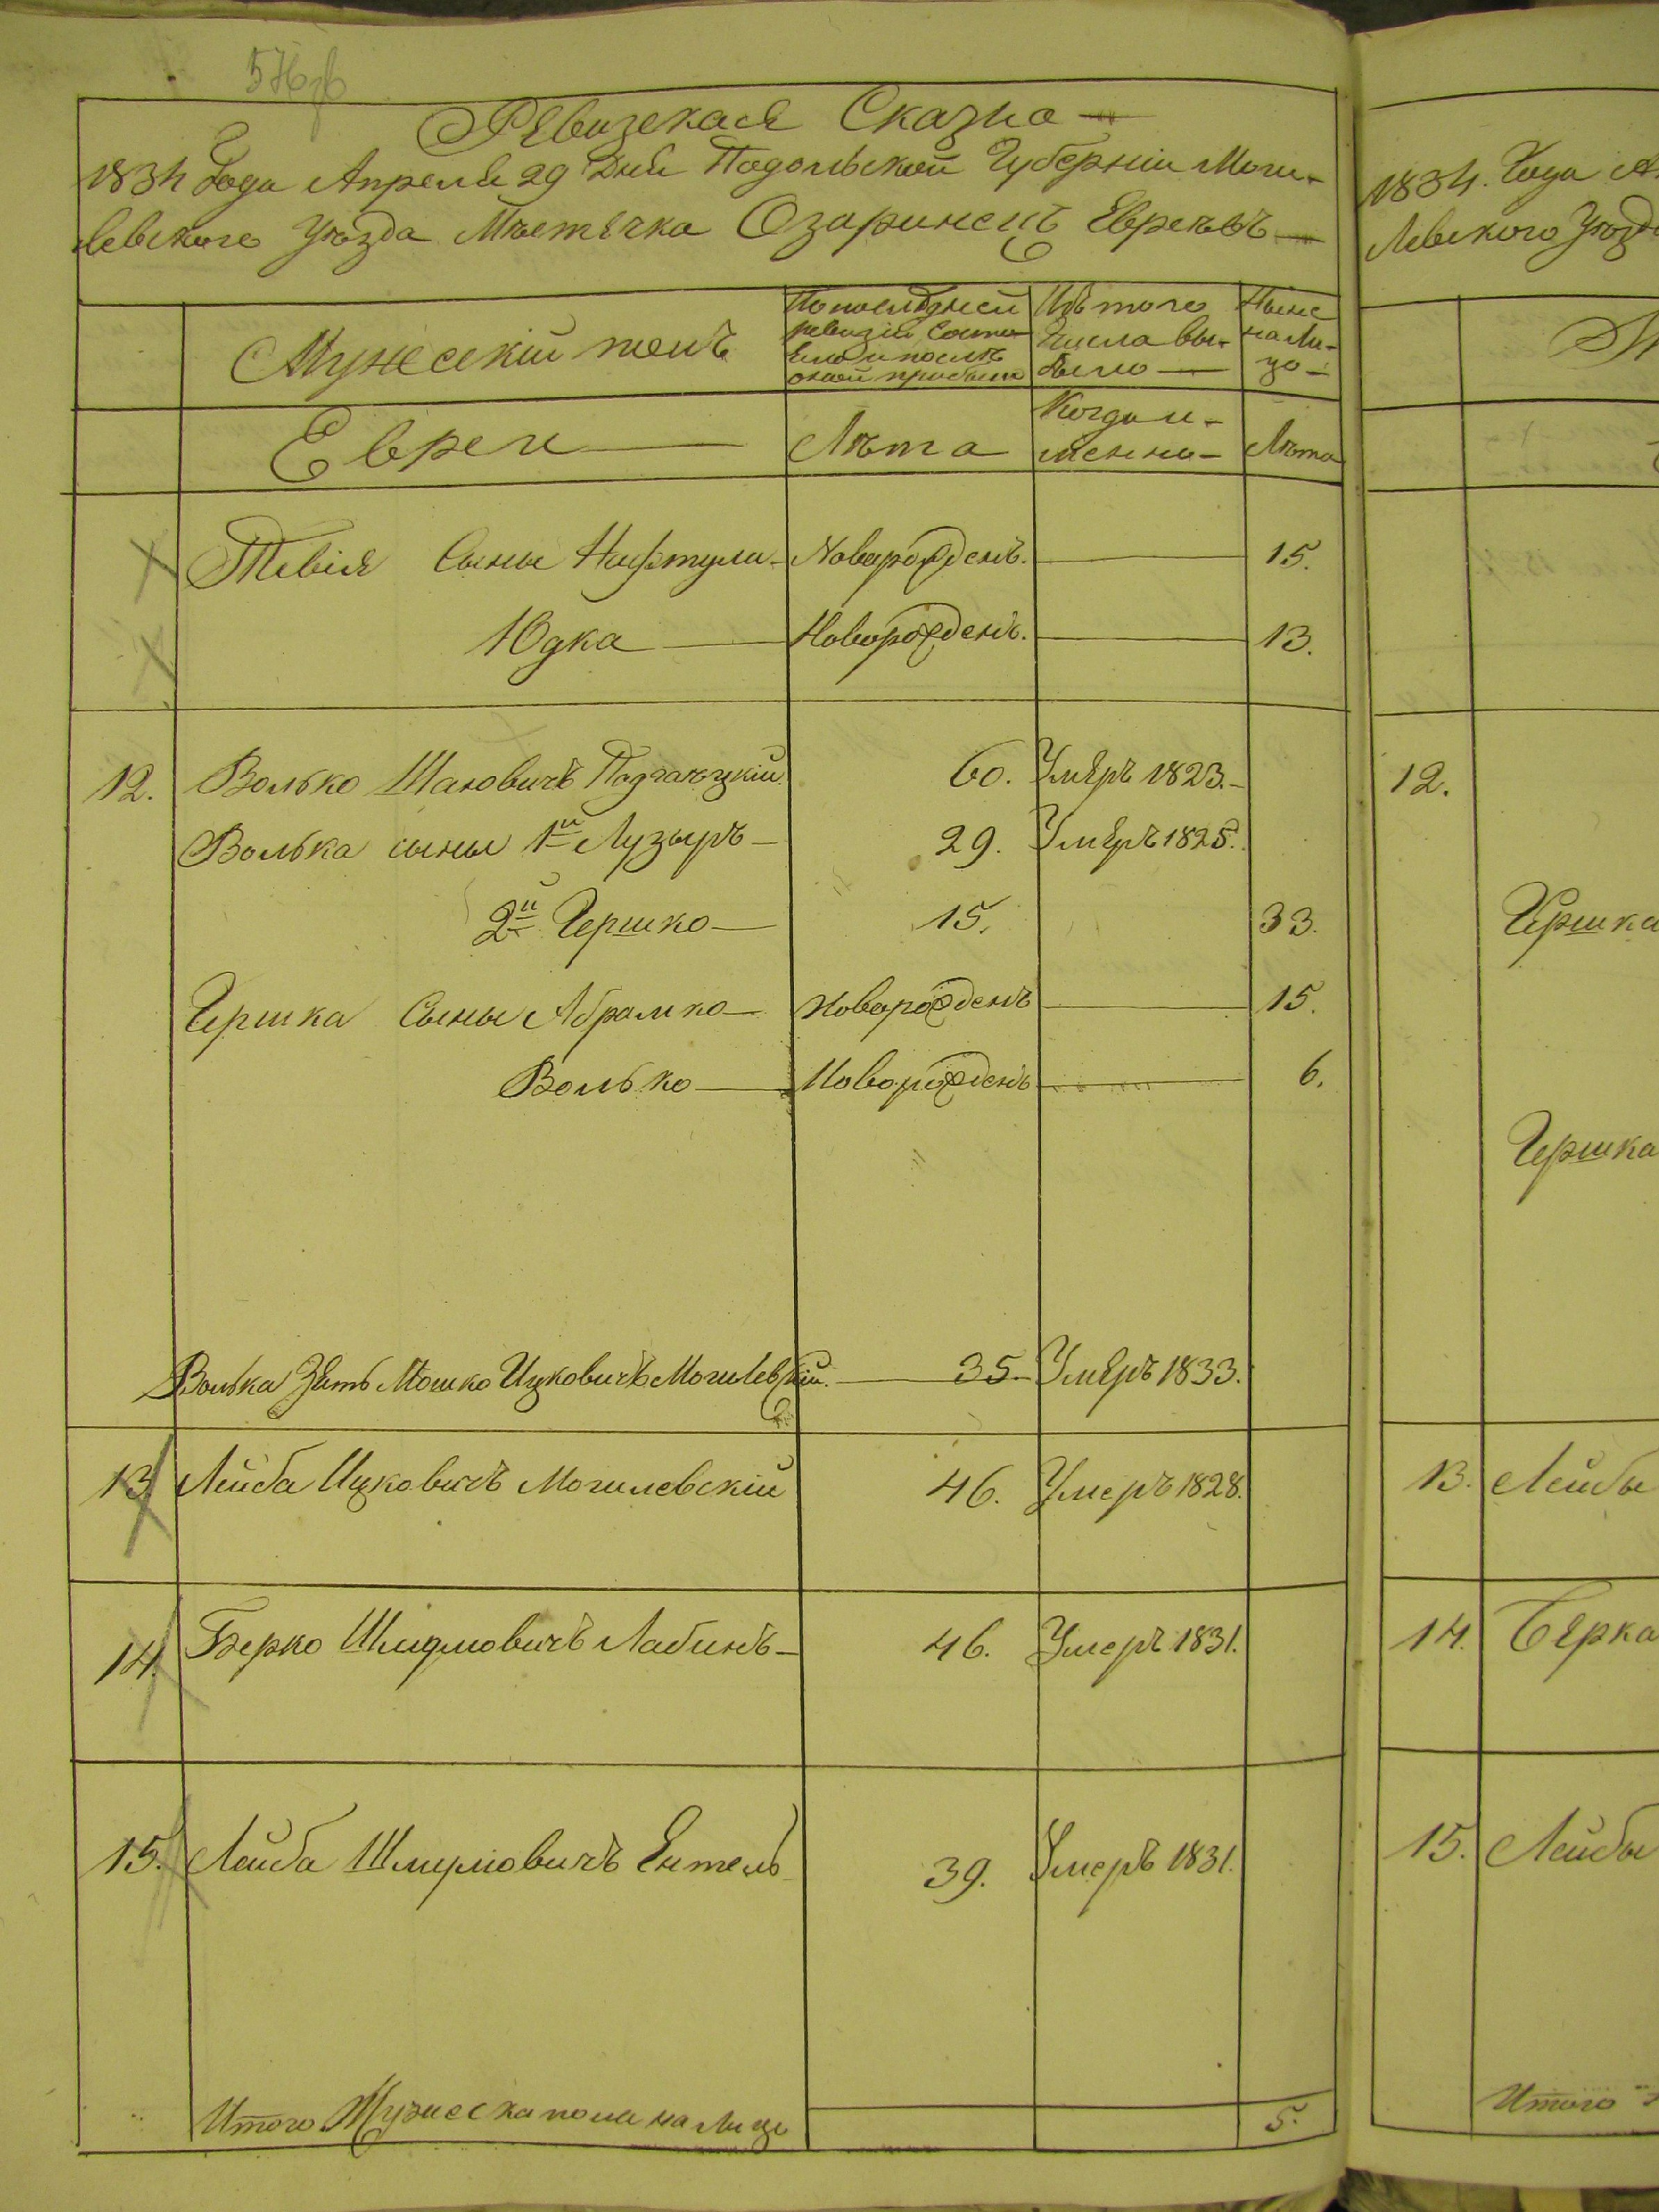 576об
Ревизская Сказка
1834 Года Апреля 29 Дня Подольской Губерніи Моги-
левского Уѣзда Мѣстечка Озаринецъ Евреѣвъ
Мужескій полъ
По последней
ревизіи состо
яло и послѣ
оной прибыло
Изъ того
Числа вы-
было
Ныне
на Ли-
цо
Евреи
Лѣта
Когда и-
менно
Лѣта
Тевія Сыны Нафтула Новорожденъ. 15.
Юдка Новорожденъ. 13.
12. Волько Шаовичъ 60. Умяръ 1823.
Волька сыны 1й Лузыръ 29. Умяръ 1825.
2й Гершко 15. 33.
Гершка Сыны Абрамко Новорожденъ 15.
Волько Новорожденъ 6.
Волька Зять Мошко Ицковичъ Могилевскій. 35. Умяръ 1833.
13. Лейба Ицковичъ Могилевскій 46. Умеръ 1828.
14. Берко Шмулёвичъ Лабинъ 46. Умеръ 1831.
15. Лейба Шмулёвичъ Ентель 39. Умеръ 1831.
Итого Мужеска пола на Лицо 5.
1834. Года А
левского Уѣзд
12.
Гершка
Гершка
13. Лейбы
14. Берка
15. Лейбы
Итого